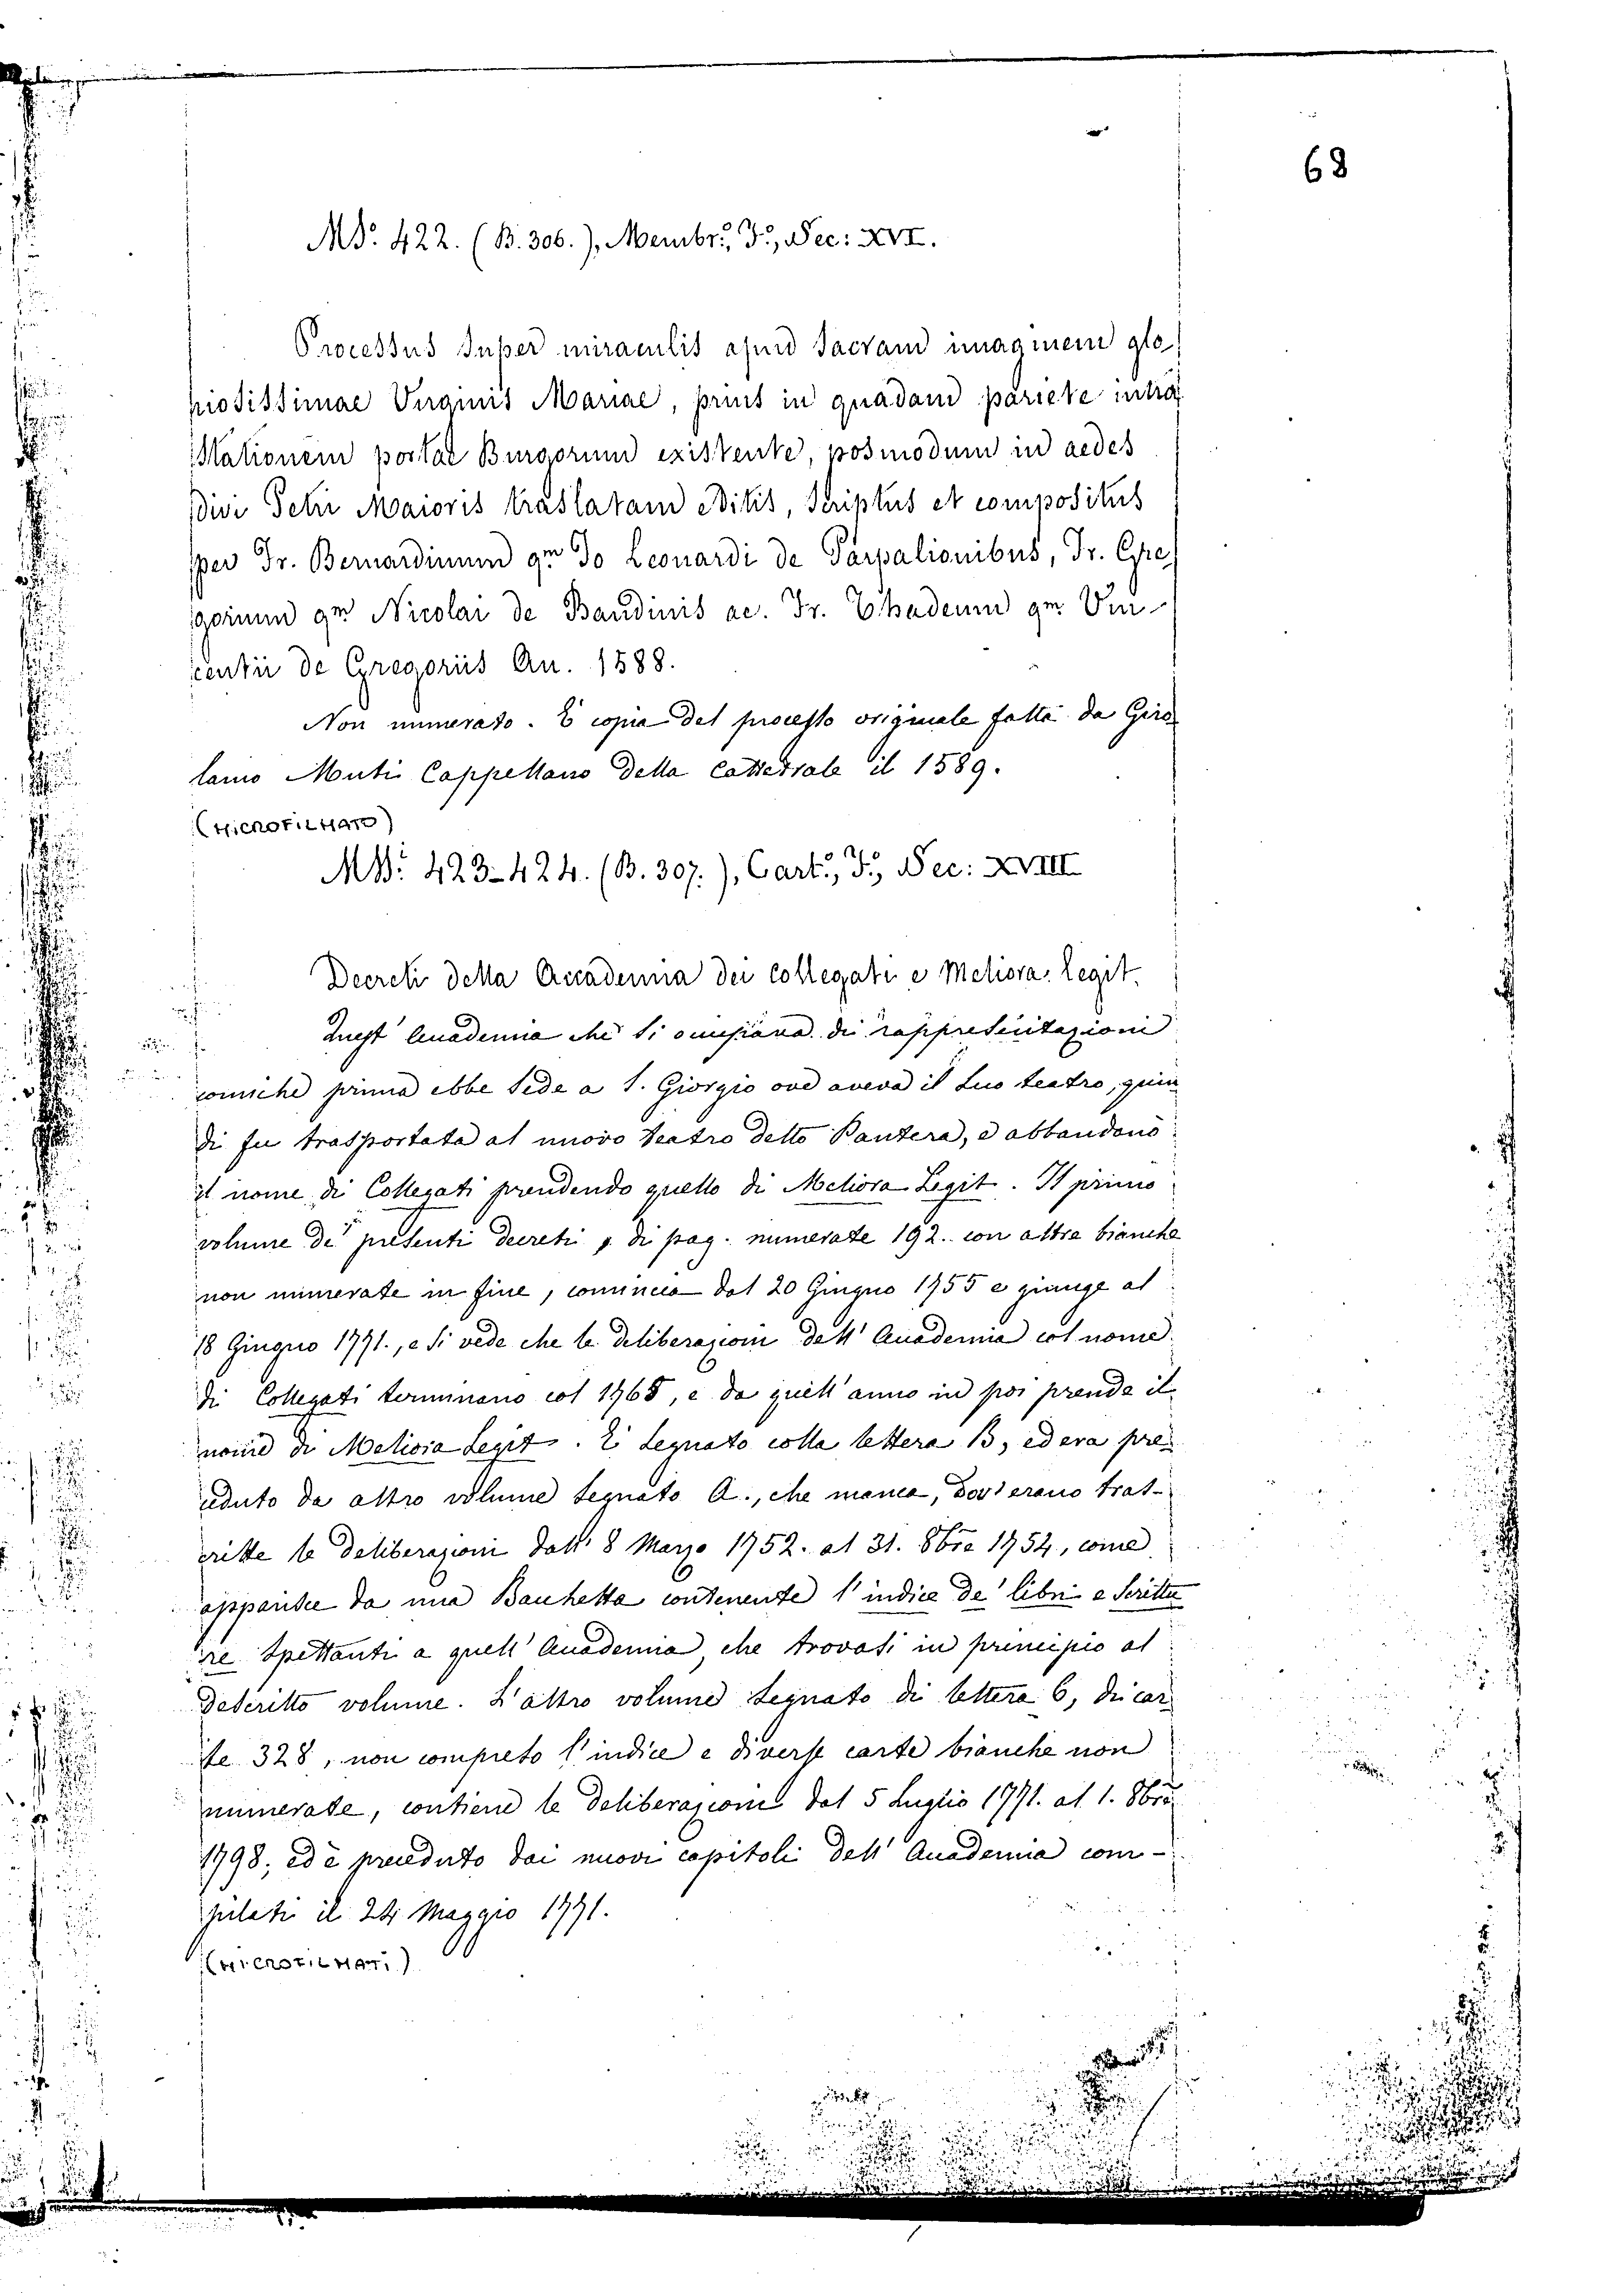 68
MS: 422. (B. 306.), Membr:, F:, Sec: XVI.
Processus super miraculis apud sacram imaginem glo
riosissimae Virginis Mariae, prius in quadam pariete intra
stationem portae Burgorum existente, posmodum in aedes
Divi Petri Maioris traslatam editis, scriptus et compositus
per Fr. Bernardinum qm Jo Leonardi de Parpalionibus, Fr. Gre
gorium qm Nicolai de Bandinis ac. Fr. Thadeum qm Vin
centii de Gregoriis An. 1588.
Non numerato. È copia del processo originale fatta da Giro
lamo Muti Cappellano della Cattedrale il 1589.
(MICROFILMATO)
MSS: 423-424. (B. 307.), Cart:, F:, Sec: XVIII
Decreti della Accademia dei collegati e Meliora Legit.
Quest' Accademia che si occupava di rappresentazioni
comiche prima ebbe sede a S. Giorgio ove aveva il suo teatro, quin
di fu trasportata al nuovo teatro detto Pantera, e abbandonò
il nome di Collegati prendendo quello di Meliora Legit. Il primo
volume de' presenti decreti di pag. numerate 192. con altre bianche
non numerate in fine, comincia dal 20 Giugno 1755 e giunge al
18 Giugno 1771., e si vede che le deliberazioni dell' Accademia col nome
di Collegati terminano col 1768, e da quell' anno in poi prende il
nome di Meliora Legit. È segnato colla lettera B, ed era pre
ceduto da altro volume segnato A., che manca, dov'erano tras-
critte le deliberazioni dall' 8 Marzo 1752. al 31. 8bre 1754, come
apparisce da una Bachetta contenente l'indice de' libri e scrittu
re spettanti a quell' Accademia, che trovasi in principio al
descritto volume. L'altro volume segnato di lettera C, di car
te 328, non compreso l'indice e diverse carte bianche non
numerate, contiene le deliberazioni dal 5 Luglio 1771. al 1. 8bre
1798; ed è preceduto dai nuovi capitoli dell' Accademia com-
pilati il 24 Maggio 1771.
(MICROFILMATI)